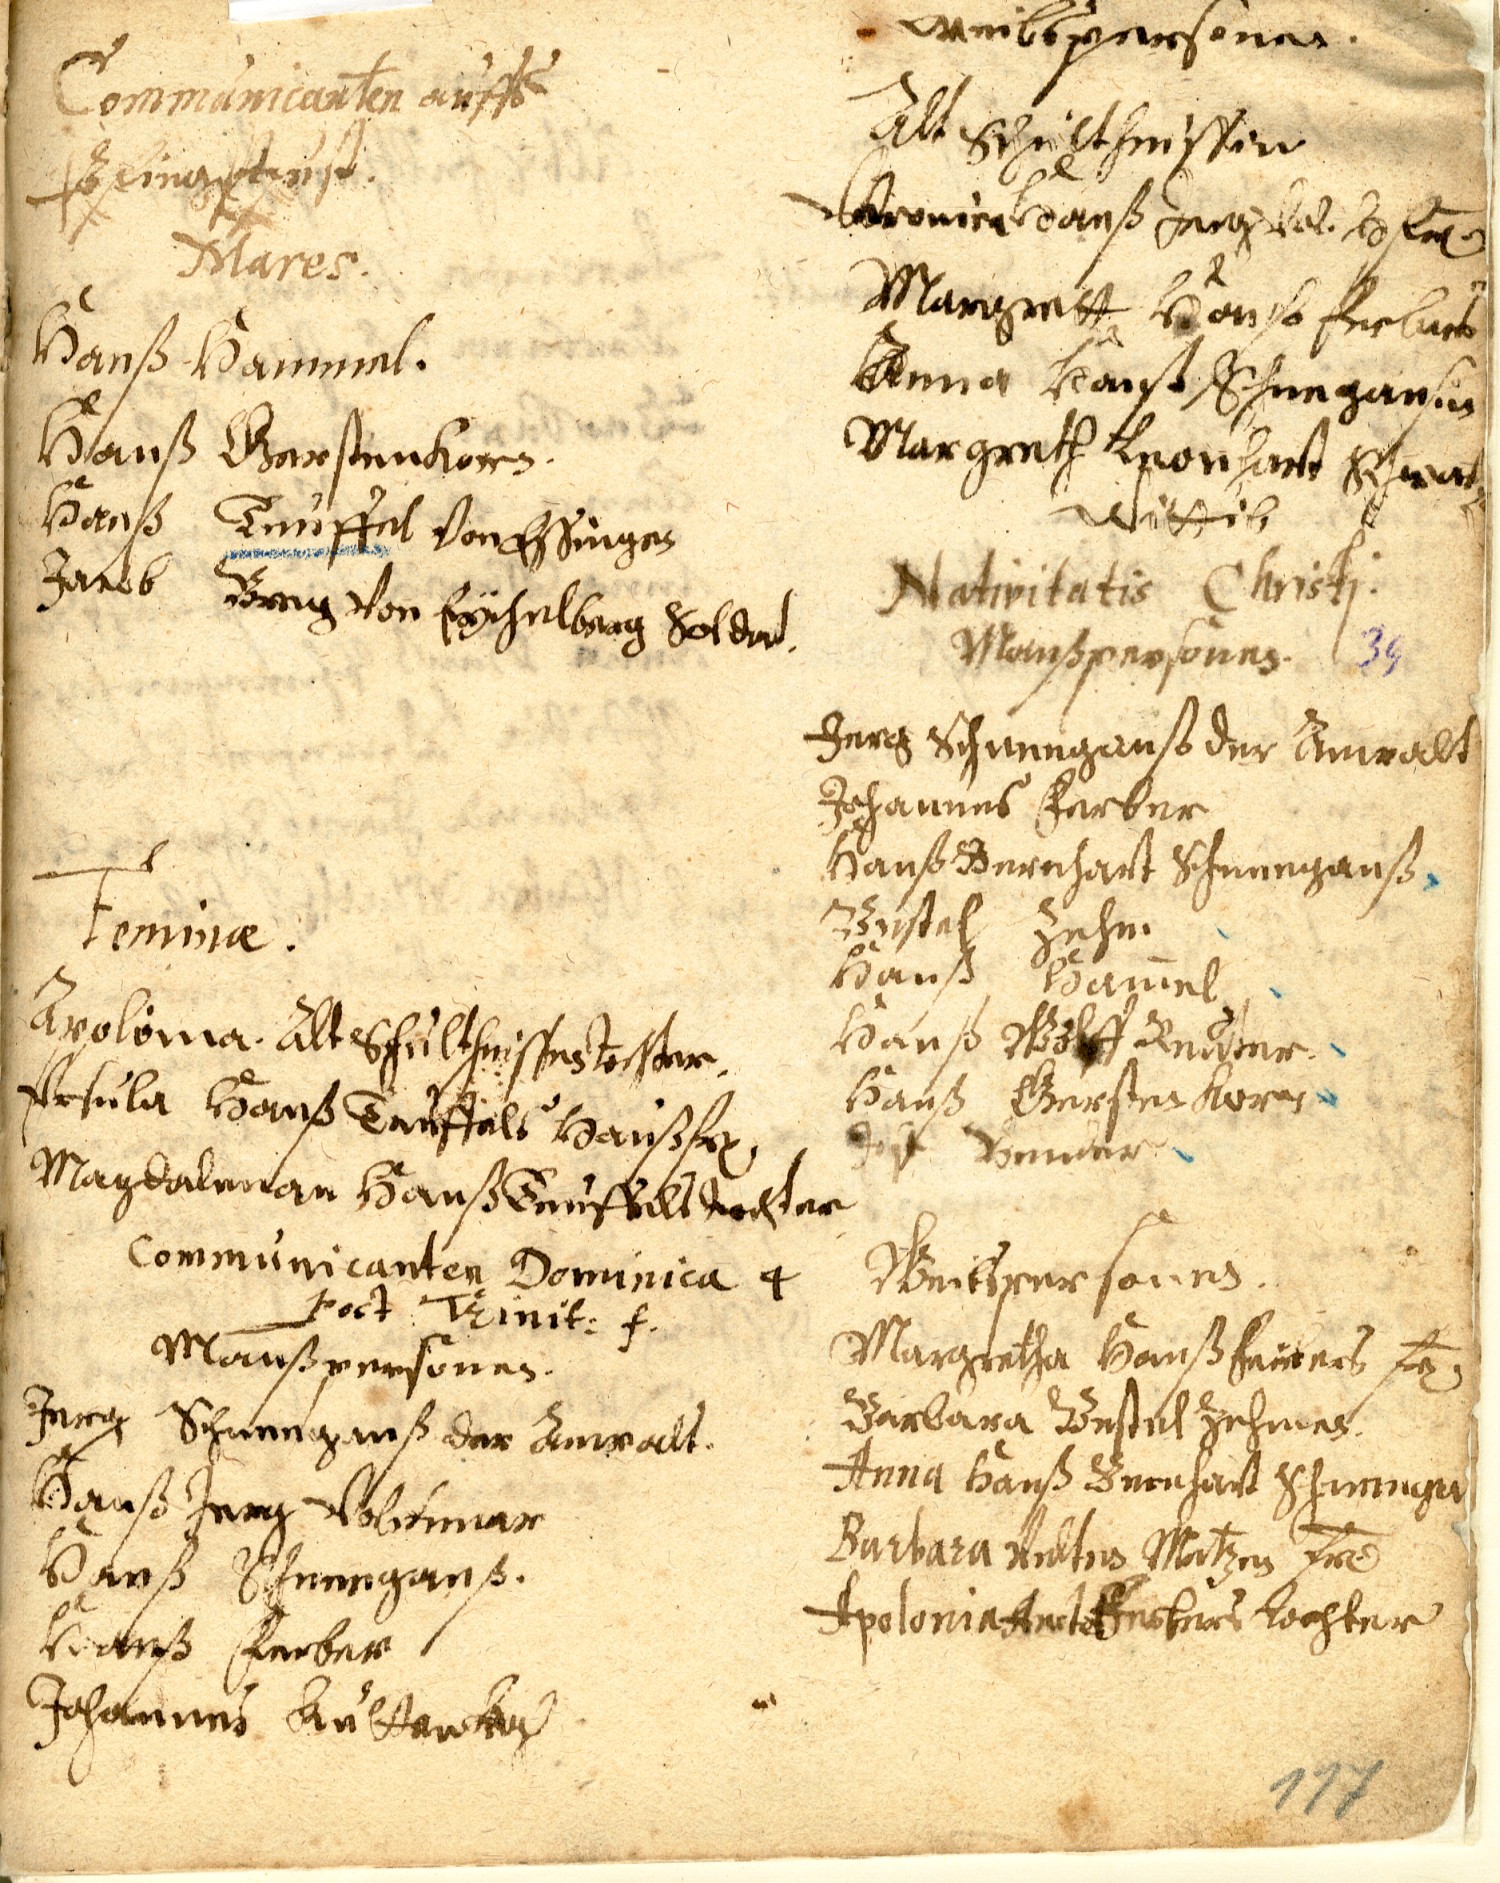 Communicanten auffs
Pfingstfest.
Mares.
Hanß Hammel.
Hanß Gerstenkorn.
Hanß Teuffel Von Essingen
Jacob Von Eychelberg Soldat.
Feminæ.
Apolonia. Alt Schultheissen tochter.
Ursula Hanß Teuffels Haußfr.
Magdalenan Hanß Teuffels tochter
Communicanten Dominica 4
Post Trinit: f.
Manßpersonen.
Jerg Schneeganß der Anwalt.
Hanß Jerg Volckmar
Hanß Schneeganß.
Hanß Ferber
Johannes
Weibspersonen.
Alt Schultheissin
Hanß Jerg
Margrett Hanß Ferbers
Anna Hanß Schnegansin
Margreth Leonhart
Wittib
Nativitatis Christi.
Manßpersonen. 39
Jerg Schneeganß der Anwalt
Johannes Ferber
Hanß Bernhart Schneeganß
Bastel Zehm
Hanß Ham̄el
Hanß Wolff Reutter.
Hanß Gersten Korn
Bender
Weibspersonen.
Margretha Hanß Ferbers fr.
Barbara Bastel Zehmen.
Anna Hanß Bernhart Schneega
Barbara Veltens Matzen fr
Apolonia Beckers tochter
117